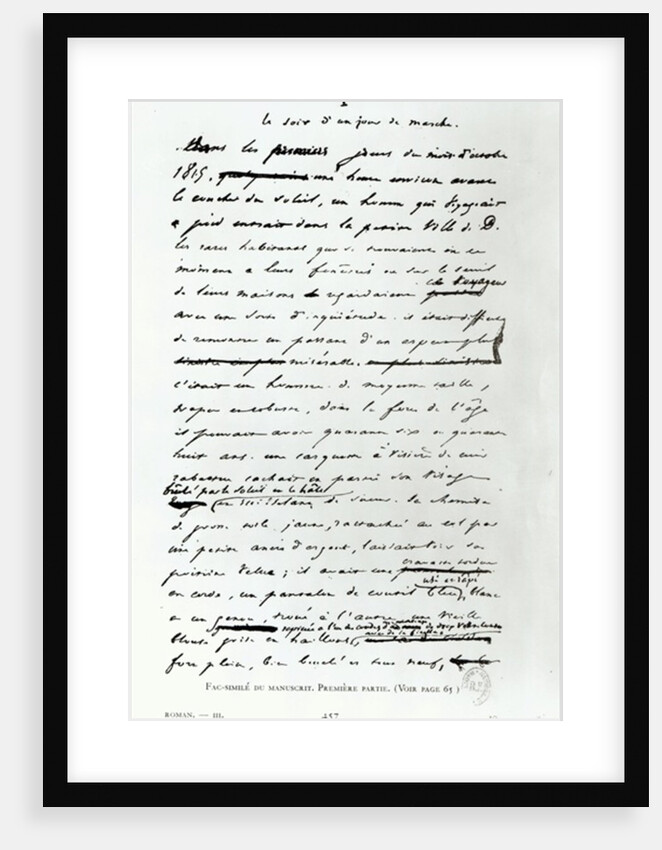 2
le soir d'un jour de marche.
Dans les premiers jours du mois d'octobre
1815, une heure environ avant
le coucher du soleil, un homme qui voyageait
à pied entrait dans la petite ville de D.
les rares habitants qui se trouvaient en ce
moment à leurs fenêtres ou sur le seuil
ce voyageur
de leurs maisons regardaient
avec une sorte d'inquiétude. il était difficile
de rencontrer un passant d'un aspect plus
misérable.
c'était un homme de moyenne taille,
trapu et robuste, dans la force de l'âge
il pouvait avoir quarante six ou quarante
huit ans. une casquette à visière de cuir
rabattue cachait en partie son visage
brûlé par le soleil et le hâle
et ruisselant de sueur. sa chemise
de grosse toile jaune, rattachée au col par
une petite ancre d'argent, laissait voir sa
poitrine velue ; il avait une
cravate tordue
en corde, un pantalon de coutil bleu,
usé et râpé
blanc
à un genou, troué à l'autre, une vieille
blouse grise en haillons,
fort plein, bien bouclé et tout neuf,
FAC-SIMILÉ DU MANUSCRIT. PREMIÈRE PARTIE. (VOIR PAGE 65)
ROMAN. — III. 457